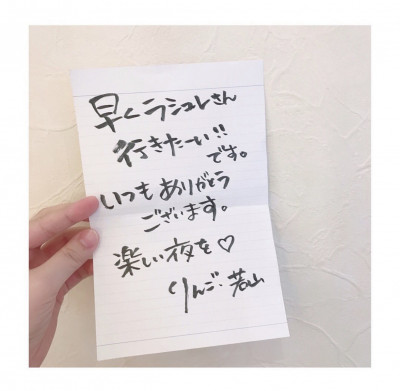 早くラシュレさん
行きたーい!!
です。
いつもありがとう
ございます。
楽しい夜を♡
りんご・若山